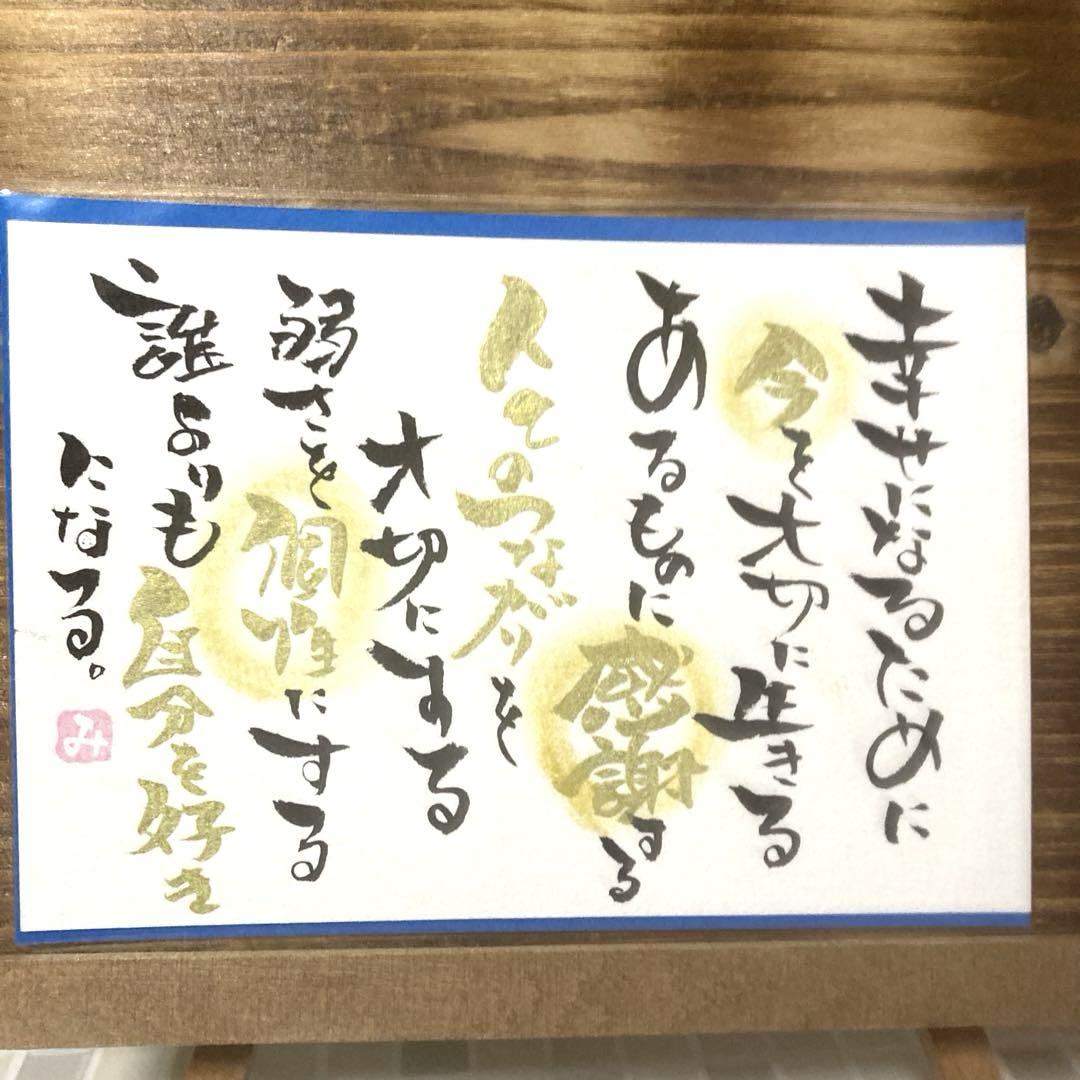 幸せになるために
今を大切に生きる
あるものに感謝する
人とのつながりを
大切にする
弱さを個性にする
誰よりも自分を好き
になる。
み